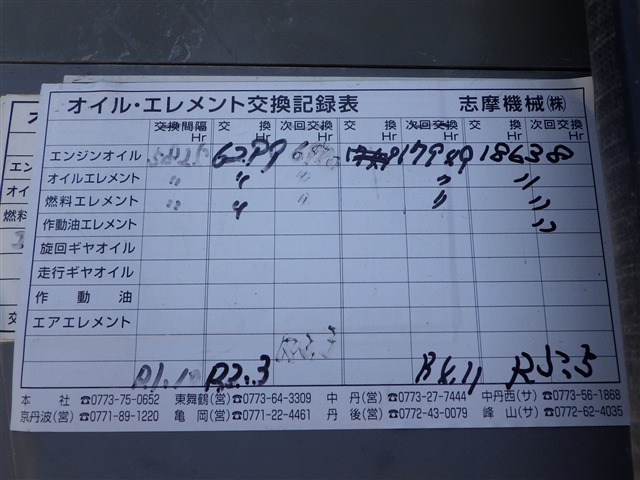 オイル・エレメント交換記録表 志摩機械㈱
交換間隔 Hr 交換 Hr 次回交換 Hr 交換 Hr 次回交換 Hr 交換 Hr 次回交換 Hr
エンジンオイル 6299 1799 1863
オイルエレメント 〃 〃 〃 〃
燃料エレメント 〃 〃 〃 〃
作動油エレメント 〃
旋回ギヤオイル
走行ギヤオイル
作動油
エアエレメント
R2.3 R4.11 R5.5
本社☎0773-75-0652 東舞鶴(営)☎0773-64-3309 中丹(営)☎0773-27-7444 中丹西(サ)☎0773-56-1868
京丹波(営)☎0771-89-1220 亀岡(営)☎0771-22-4461 丹後(営)☎0772-43-0079 峰山(サ)☎0772-62-4035